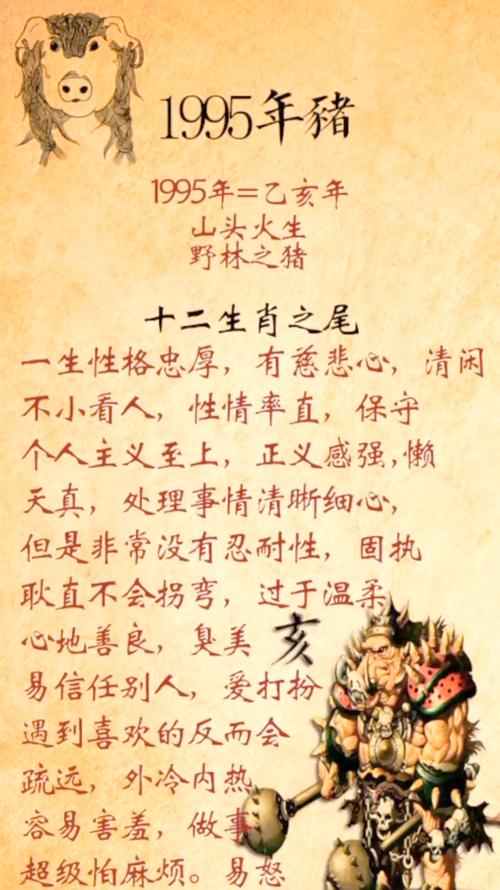 1995年豬
1995年=乙亥年
山头火生
野林之猪
十二生肖之尾
一生性格忠厚，有慈悲心，清闲
不小看人，性情率直，保守
个人主义至上，正义感强，懒
天真，处理事情清晰细心，
但是非常没有忍耐性，固执
耿直不会拐弯，过于温柔
心地善良，臭美
亥
易信任别人，爱打扮
遇到喜欢的反而会
疏远，外冷内热
容易害羞，做事
超级怕麻烦。易怒